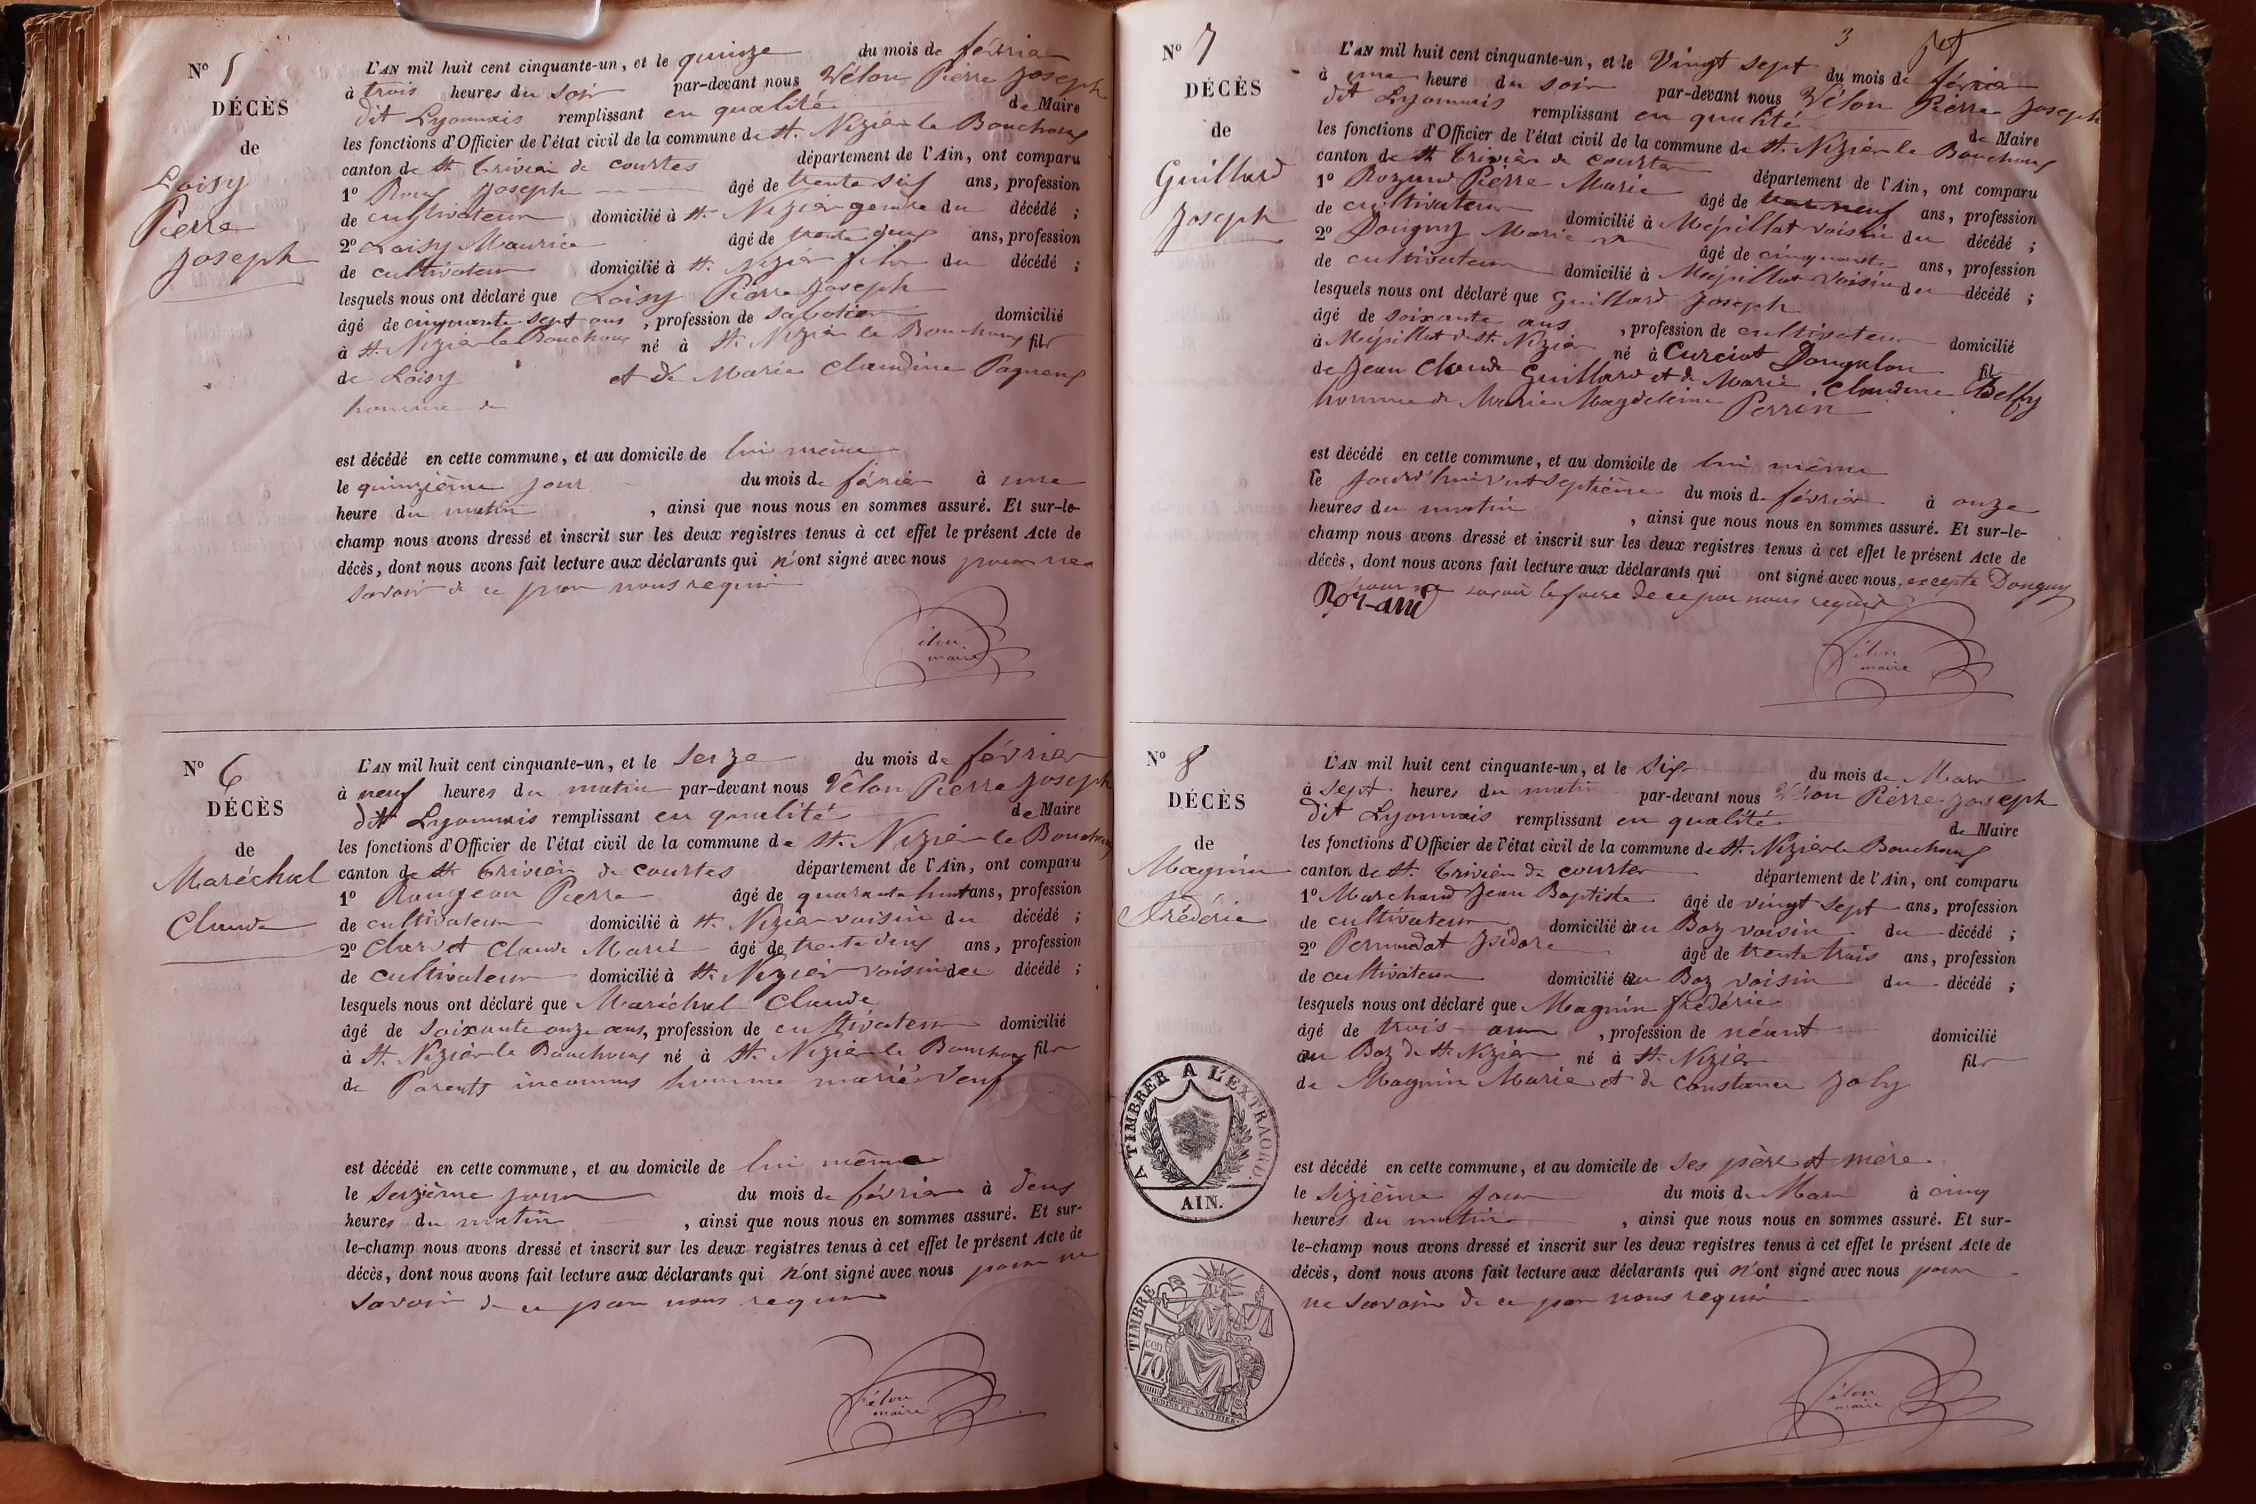 N° 5
DÉCÈS
de
Loisy
Pierre
Joseph
L'AN mil huit cent cinquante-un, et le quinze du mois de février
à trois heures du soir par-devant nous Vélon Pierre Joseph
dit Lyonnais remplissant en qualité de Maire
les fonctions d'Officier de l'état civil de la commune de St. Nizier le Bouchoux
canton de St Trivier de courtes département de l'Ain, ont comparu
1° Joseph âgé de trente six ans, profession
de cultivateur domicilié à St. Nizier gendre du décédé ;
2° Loisy Maurice âgé de trente deux ans, profession
de cultivateur domicilié à St. Nizier fils du décédé ;
lesquels nous ont déclaré que Loisy Pierre Joseph
âgé de cinquante sept ans, profession de sabotier domicilié
à St. Nizier le Bouchoux né à St. Nizier le Bouchoux fils
de Loisy et de Marie Claudine Pagneux
homme de
est décédé en cette commune, et au domicile de lui même
le quinzième jour du mois de février à une
heure du matin, ainsi que nous nous en sommes assuré. Et sur-le-
champ nous avons dressé et inscrit sur les deux registres tenus à cet effet le présent Acte de
décès, dont nous avons fait lecture aux déclarants qui n'ont signé avec nous pour ne
savoir de ce par nous requis
Vélon
maire
N° 6
DÉCÈS
de
Maréchal
Claude
L'AN mil huit cent cinquante-un, et le seize du mois de février
à neuf heures du matin par-devant nous Vélon Pierre Joseph
dit Lyonnais remplissant en qualité de Maire
les fonctions d'Officier de l'état civil de la commune de St. Nizier le Bouchoux
canton de St Trivier de courtes département de l'Ain, ont comparu
1° Rougeon Pierre âgé de quarante huit ans, profession
de cultivateur domicilié à St. Nizier voisin du décédé ;
2° Claude Marie âgé de trente deux ans, profession
de cultivateur domicilié à St. Nizier voisin du décédé ;
lesquels nous ont déclaré que Maréchal Claude
âgé de soixante onze ans, profession de cultivateur domicilié
à St. Nizier le Bouchoux né à St. Nizier le Bouchoux fils
de Parents inconnus homme marié veuf
est décédé en cette commune, et au domicile de lui même
le seizième jour du mois de février à deux
heures du matin, ainsi que nous nous en sommes assuré. Et sur-
le-champ nous avons dressé et inscrit sur les deux registres tenus à cet effet le présent Acte de
décès, dont nous avons fait lecture aux déclarants qui n'ont signé avec nous pour ne
savoir de ce par nous requis
Vélon
maire
3
N° 7
DÉCÈS
de
Guillard
Joseph
L'AN mil huit cent cinquante-un, et le Vingt sept du mois de février
à une heure du soir par-devant nous Vélon Pierre Joseph
dit Lyonnais remplissant en qualité de Maire
les fonctions d'Officier de l'état civil de la commune de St. Nizier le Bouchoux
canton de St Trivier de courtes département de l'Ain, ont comparu
1° Rozand Pierre Marie âgé de neuf ans, profession
de cultivateur domicilié à Mépillat voisin du décédé ;
2° Donguy Marie âgé de cinquante ans, profession
de cultivateur domicilié à Mépillat voisin du décédé ;
lesquels nous ont déclaré que Guillard Joseph
âgé de soixante ans, profession de cultivateur domicilié
à Mépillat de St. Nizier né à Curciat Dongalon fils
de Jean Claude Guillard et de Marie Claudine Belfy
homme de Marie Magdeleine Perrin
est décédé en cette commune, et au domicile de lui même
le jourd'hui vint septième du mois de février à onze
heures du matin, ainsi que nous nous en sommes assuré. Et sur-le-
champ nous avons dressé et inscrit sur les deux registres tenus à cet effet le présent Acte de
décès, dont nous avons fait lecture aux déclarants qui ont signé avec nous, excepté Donguy
pour ne savoir le faire de ce par nous requis
Rozand
Vélon
maire
N° 8
DÉCÈS
de
Magnin
Frédéric
L'AN mil huit cent cinquante-un, et le six du mois de Mars
à sept heures du matin par-devant nous Vélon Pierre Joseph
dit Lyonnais remplissant en qualité de Maire
les fonctions d'Officier de l'état civil de la commune de St. Nizier le Bouchoux
canton de St. Trivier de courtes département de l'Ain, ont comparu
1° Marchand Jean Baptiste âgé de vingt sept ans, profession
de cultivateur domicilié au Boz voisin du décédé ;
2° Isidore âgé de trente trois ans, profession
de cultivateur domicilié au Boz voisin du décédé ;
lesquels nous ont déclaré que Magnin frédéric
âgé de trois ans, profession de néant domicilié
au Boz de St. Nizier né à St. Nizier fils
de Magnin Marie et de Constance Joly
est décédé en cette commune, et au domicile de ses père et mère
le sixième jour du mois de Mars à cinq
heures du matin, ainsi que nous nous en sommes assuré. Et sur-
le-champ nous avons dressé et inscrit sur les deux registres tenus à cet effet le présent Acte de
décès, dont nous avons fait lecture aux déclarants qui n'ont signé avec nous pour
ne savoir de ce par nous requis
Vélon
maire
A TIMBRER A L'EXTRAORD.
AIN.
TIMBRE
70